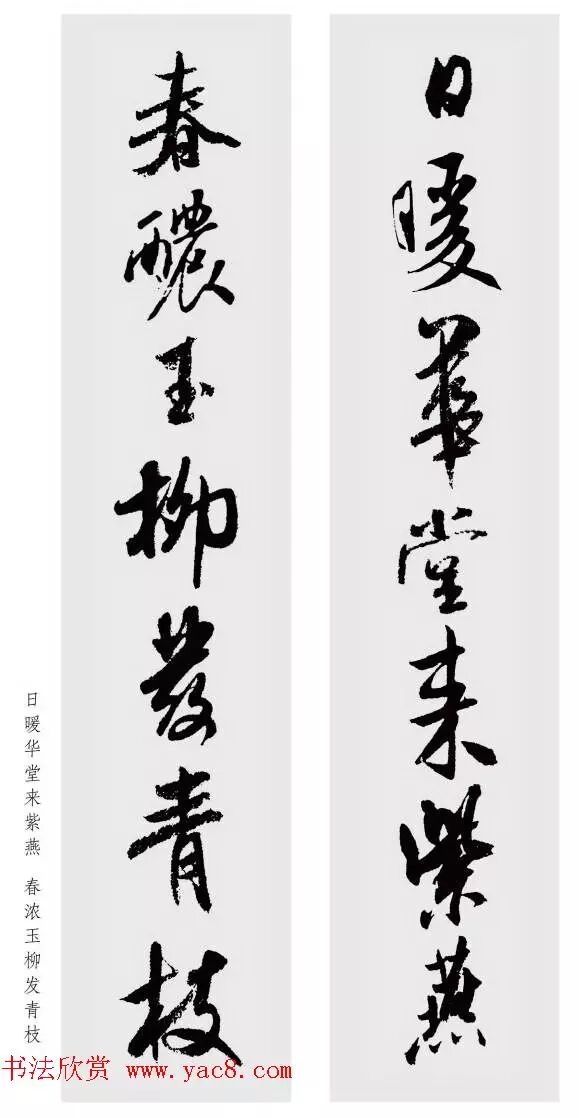 日暖華堂来紫燕
春醲玉柳發青枝
日暖华堂来紫燕 春浓玉柳发青枝
书法欣赏 www.yac8.com